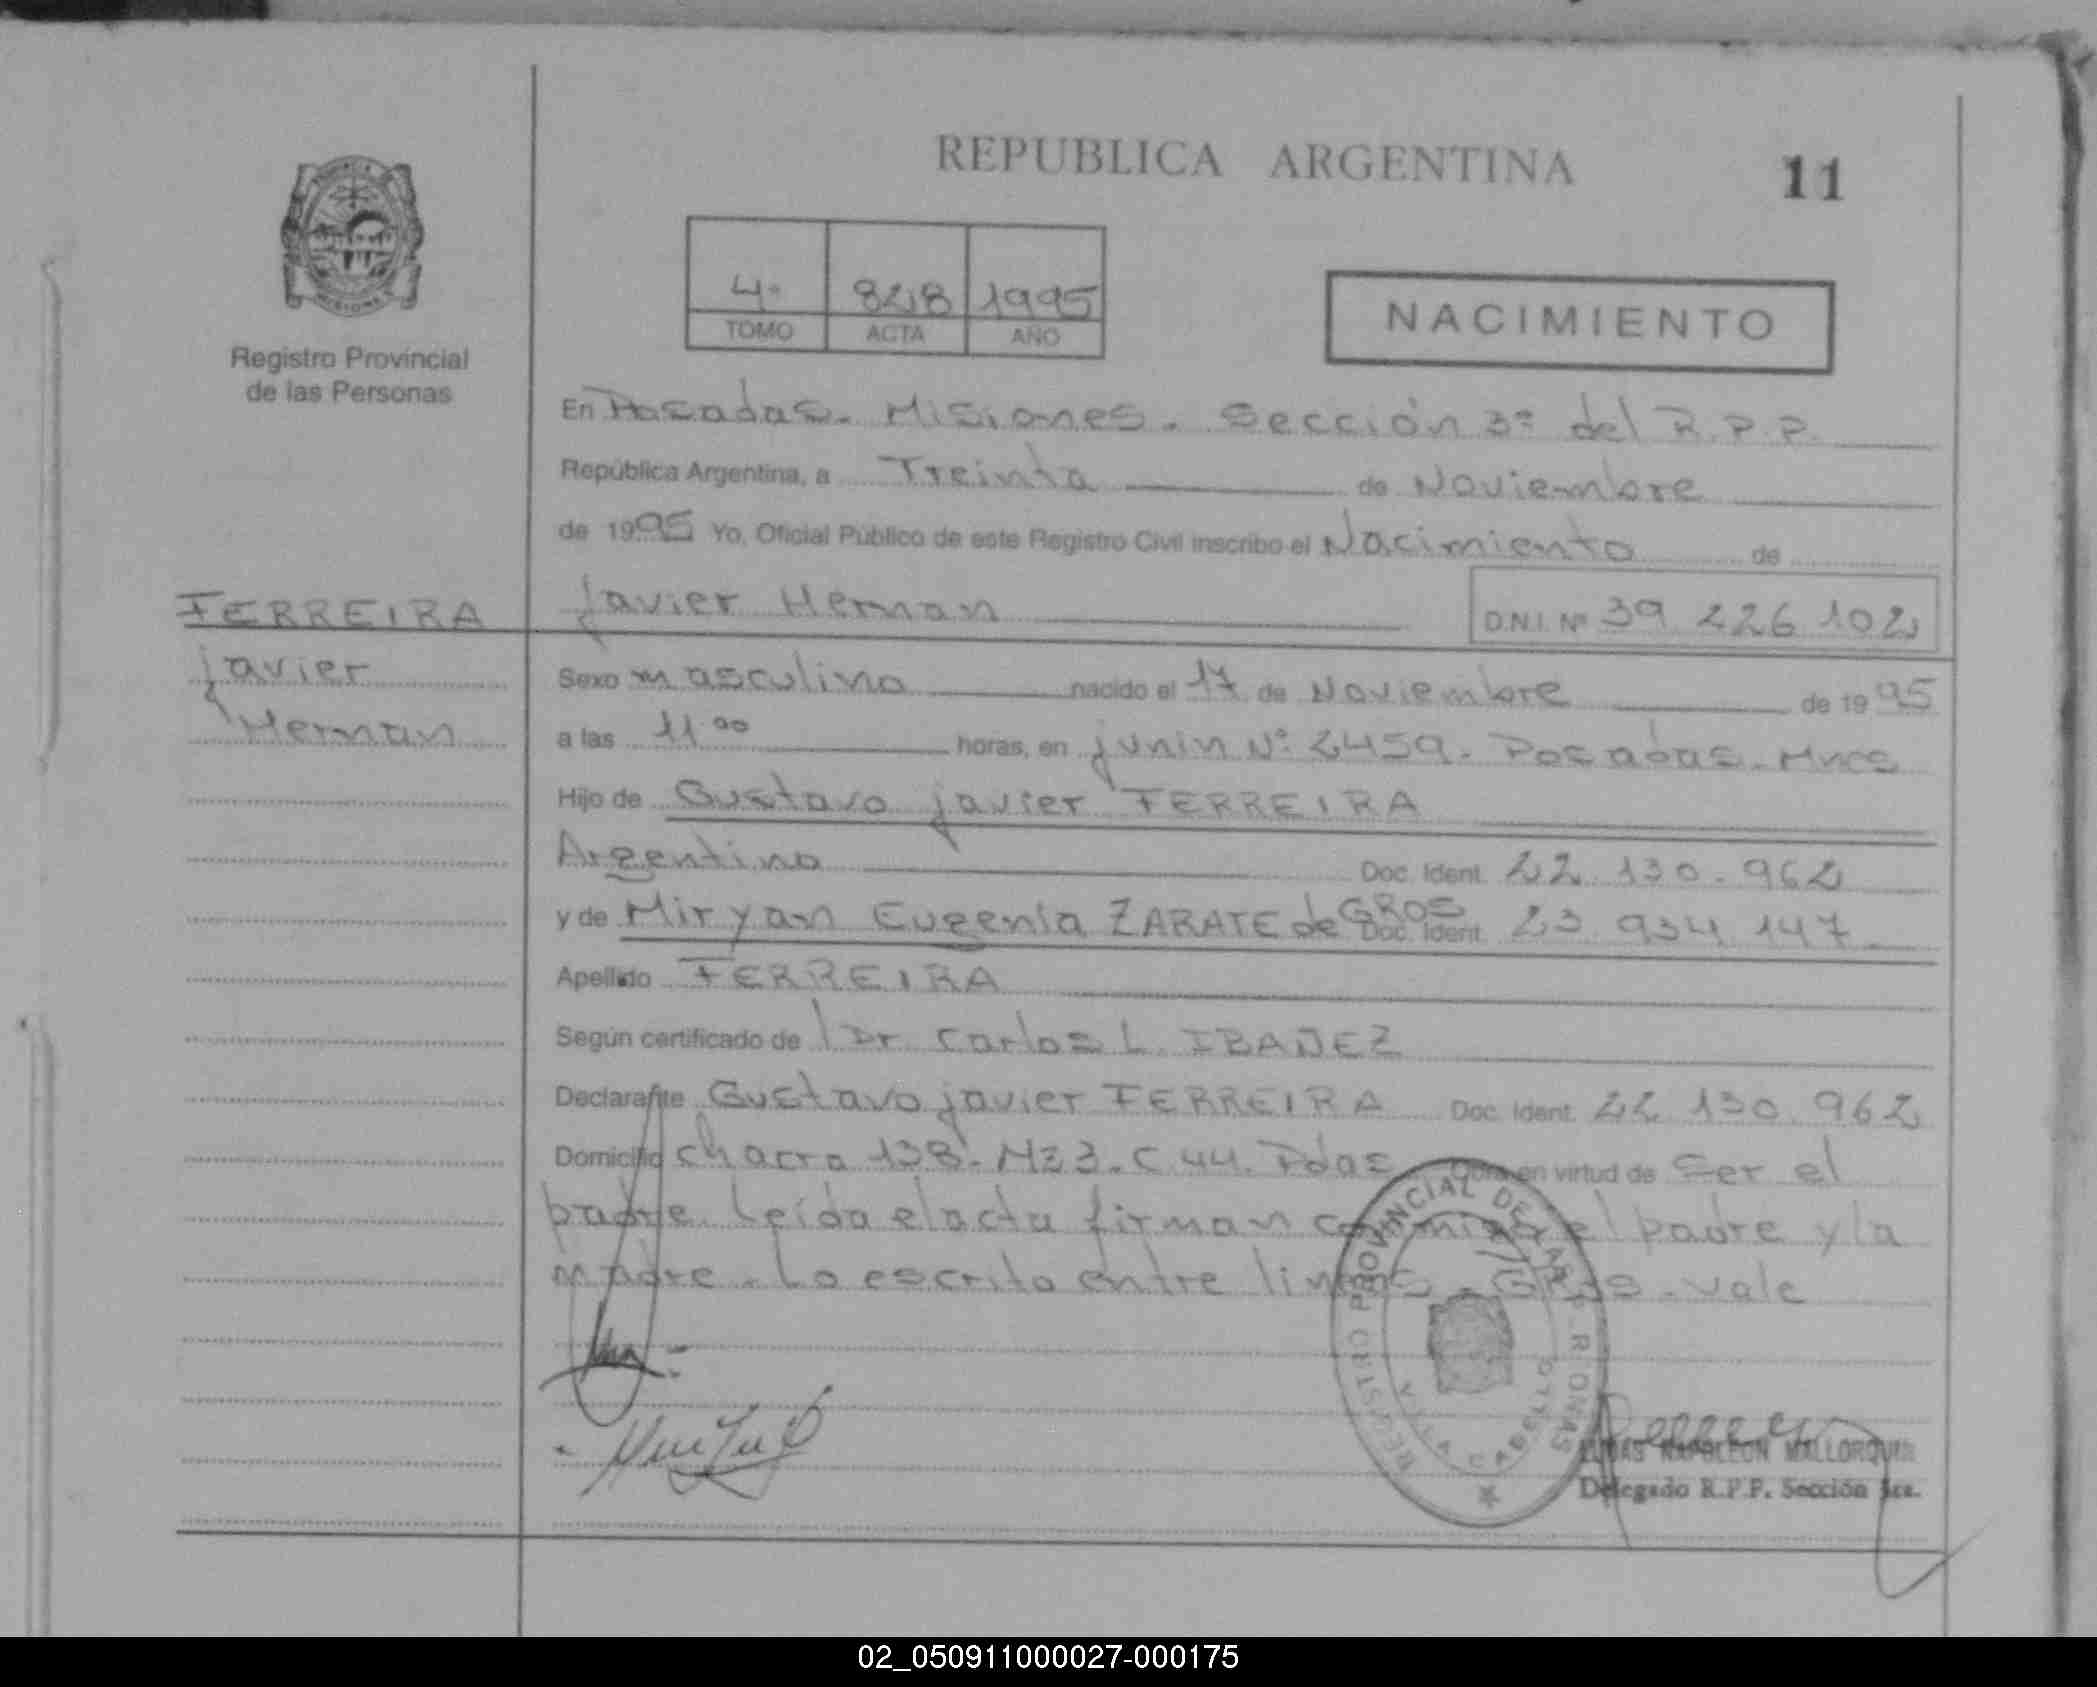 REPUBLICA ARGENTINA
11
4º 828 1995
TOMO ACTA AÑO
NACIMIENTO
MISIONES
Registro Provincial
de las Personas
En Posadas. Misiones. Sección 3ª del R.P.P.
República Argentina, a Treinta de Noviembre
de 1995 Yo, Oficial Público de este Registro Civil inscribo el Nacimiento de
FERREIRA
Javier Hernan D.N.I. Nº 39 226 102
Javier
Hernan
Sexo masculino nacido el 17 de Noviembre de 1995
a las 11 00 horas, en junin Nº 2459. Posadas. Mnes
Hijo de Gustavo javier FERREIRA
Argentino Doc. Ident. 22 130.962
y de Miryan Eugenia ZARATE de GROS Doc. Ident. 23 934 147
Apellido FERREIRA
Según certificado de l Dr. Carlos L. IBAÑEZ
Declarante Gustavo javier FERREIRA Doc. Ident. 22 130.962
Domicilio chacra 138. Mz 3. C 44. Pdas Obra en virtud de ser el
padre. Leída el acta firman conmigo el padre y la
madre. Lo escrito entre lineas. GROS. vale
REGISTRO PROVINCIAL DE LAS PERSONAS
NAPOLEON MALLORQUIN
Delegado R.P.P. Sección 3ra.
02_050911000027-000175